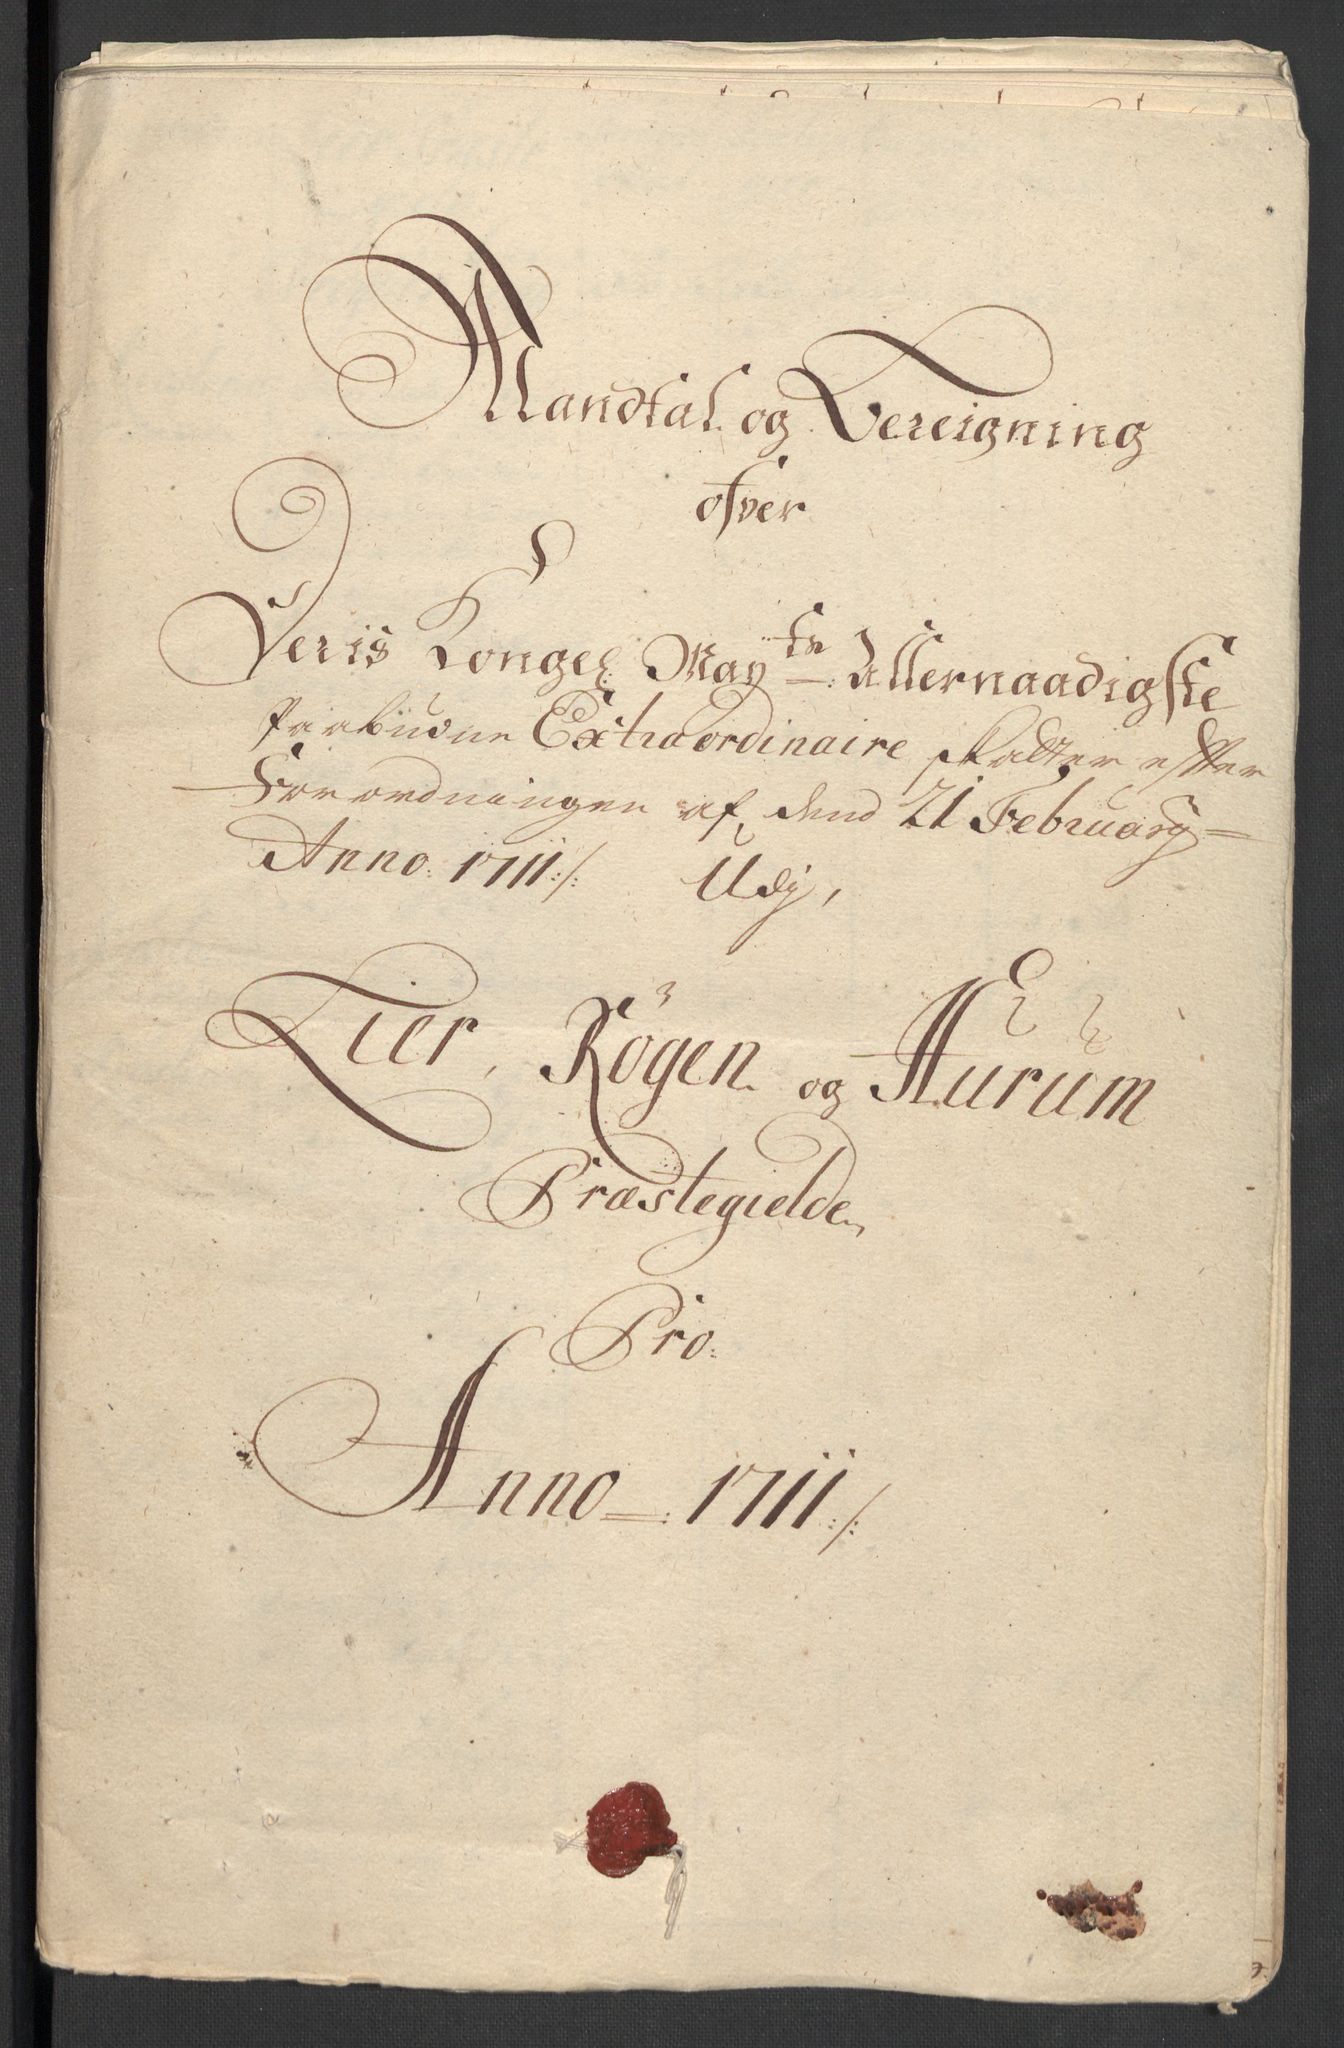 Mandtal og Bereigning
ofver
Deris Kongel: May:ts Allernaadigste
Paabudne Extraordinaire skatter efter
Forordningen af dend 21 February
Anno: 1711:/: Udj,
Lier, Rögen og Hurum
Præstegielde,
Pro:
Anno 1711:/: